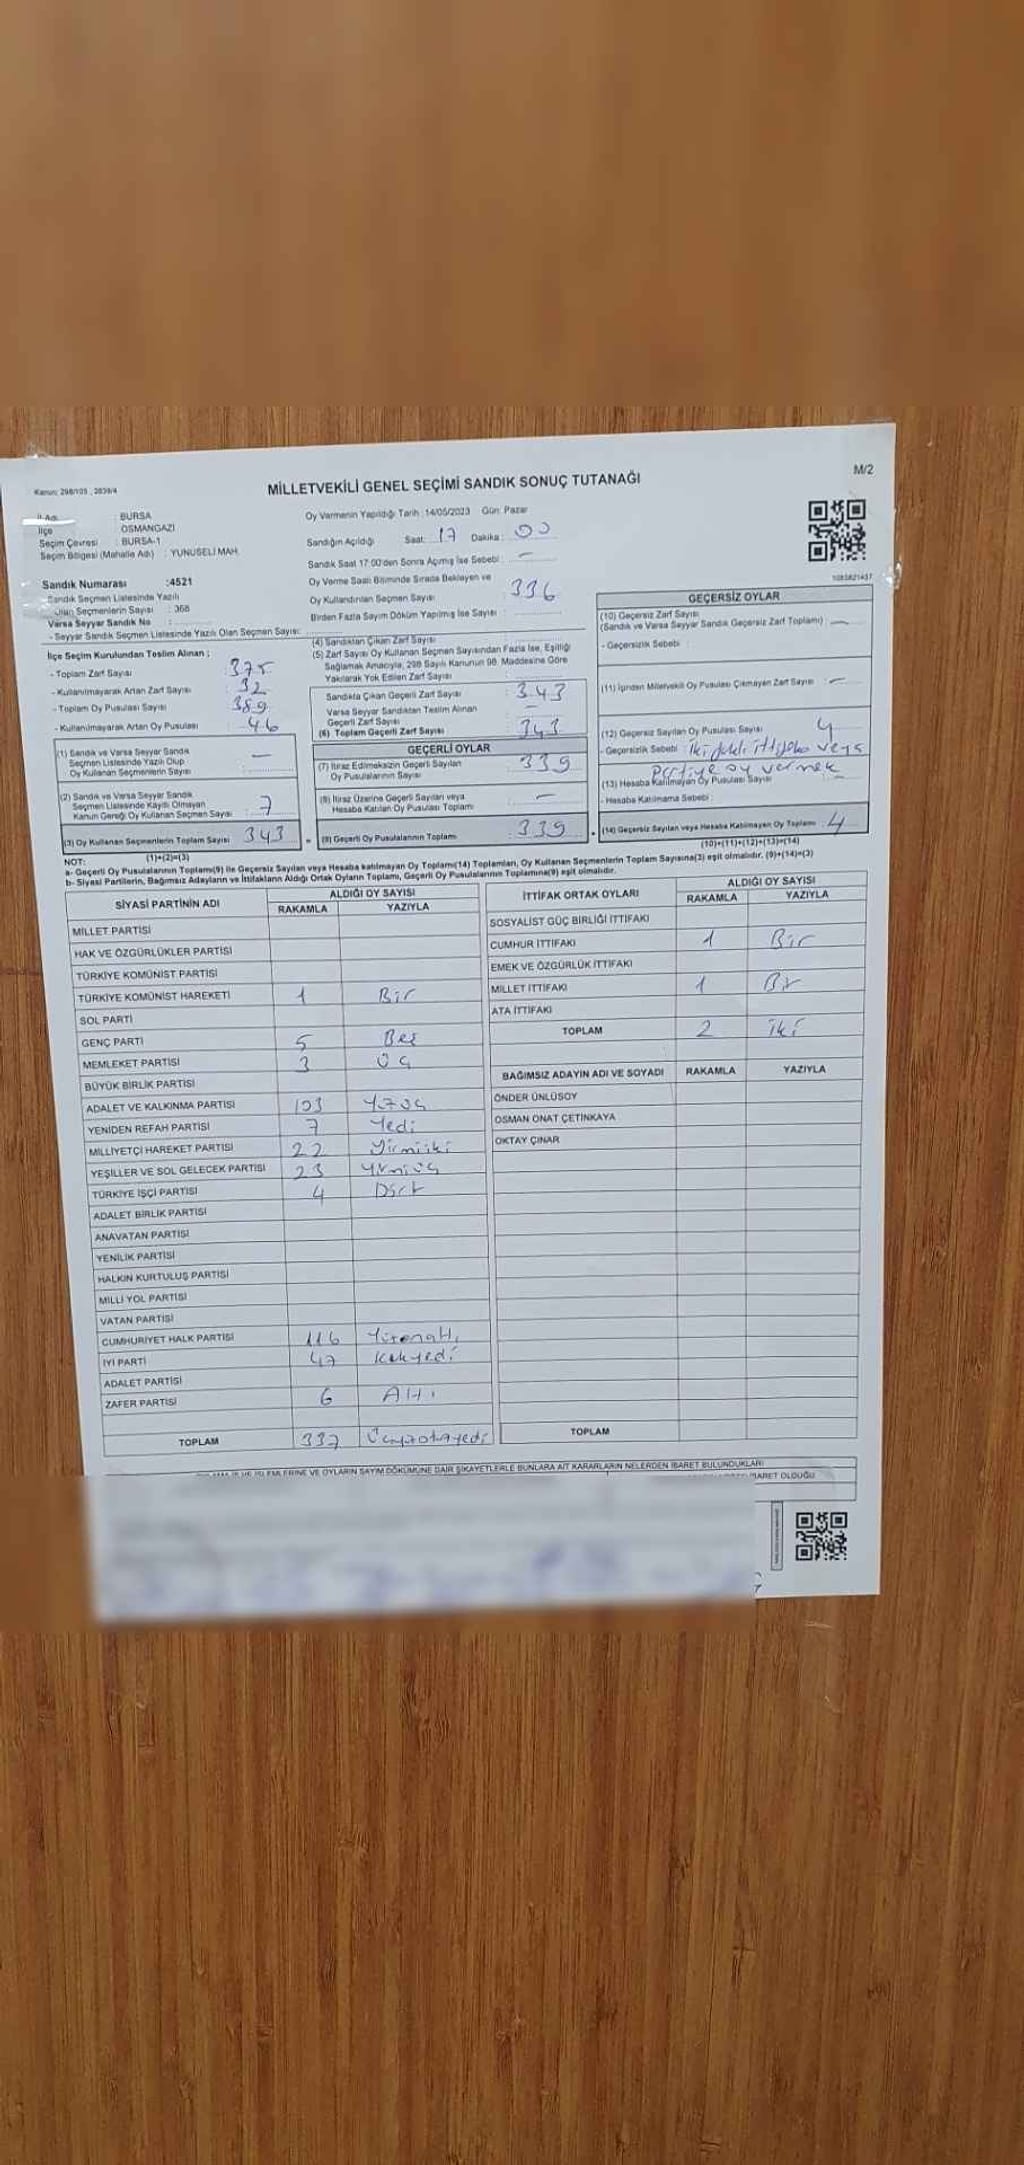 Kanun: 298/105 , 2839/4
MİLLETVEKİLİ GENEL SEÇİMİ SANDIK SONUÇ TUTANAĞI
M/2
İl Adı : BURSA
İlçe : OSMANGAZİ
Seçim Çevresi : BURSA-1
Seçim Bölgesi (Mahalle Adı) : YUNUSELİ MAH.
Sandık Numarası :4521
Sandık Seçmen Listesinde Yazılı
Olan Seçmenlerin Sayısı : 368
Varsa Seyyar Sandık No :
- Seyyar Sandık Seçmen Listesinde Yazılı Olan Seçmen Sayısı:
Oy Vermenin Yapıldığı Tarih :14/05/2023 Gün: Pazar
Sandığın Açıldığı Saat: 17 Dakika: 00
Sandık Saat 17:00'den Sonra Açımış İse Sebebi : —
Oy Verme Saati Bitiminde Sırada Bekleyen ve
Oy Kullandırılan Seçmen Sayısı : 336
Birden Fazla Sayım Döküm Yapılmış İse Sayısı :
1083821437
İlçe Seçim Kurulundan Teslim Alınan :
- Toplam Zarf Sayısı : 375
- Kullanılmayarak Artan Zarf Sayısı : 32
- Toplam Oy Pusulası Sayısı : 389
- Kullanılmayarak Artan Oy Pusulası : 46
(1) Sandık ve Varsa Seyyar Sandık
Seçmen Listesinde Yazılı Olup
Oy Kullanan Seçmenlerin Sayısı : —
(2) Sandık ve Varsa Seyyar Sandık
Seçmen Listesinde Kaydı Olmayan
Kanun Gereği Oy Kullanan Seçmen Sayısı : 7
(3) Oy Kullanan Seçmenlerin Toplam Sayısı : 343
(1)+(2)=(3)
(4) Sandıktan Çıkan Zarf Sayısı :
(5) Zarf Sayısı Oy Kullanan Seçmen Sayısından Fazla İse, Eşitliği
Sağlamak Amacıyla, 298 Sayılı Kanunun 98. Maddesine Göre
Yakılarak Yok Edilen Zarf Sayısı :
Sandıkta Çıkan Geçerli Zarf Sayısı : 343
Varsa Seyyar Sandıktan Teslim Alınan
Geçerli Zarf Sayısı : —
(6) Toplam Geçerli Zarf Sayısı : 343
GEÇERLİ OYLAR
(7) İtiraz Edilmeksizin Geçerli Sayılan
Oy Pusulalarının Sayısı : 339
(8) İtiraz Üzerine Geçerli Sayılan veya
Hesaba Katılan Oy Pusulası Toplamı : —
(9) Geçerli Oy Pusulalarının Toplamı : 339
GEÇERSİZ OYLAR
(10) Geçersiz Zarf Sayısı
(Sandık ve Varsa Seyyar Sandık Geçersiz Zarf Toplamı) : —
- Geçersizlik Sebebi :
(11) İçinden Milletvekili Oy Pusulası Çıkmayan Zarf Sayısı : —
(12) Geçersiz Sayılan Oy Pusulası Sayısı : 4
- Geçersizlik Sebebi : iki ittifaka veya
partiye oy vermek
(13) Hesaba Katılmayan Oy Pusulası Sayısı : —
- Hesaba Katılmama Sebebi :
(14) Geçersiz Sayılan veya Hesaba Katılmayan Oy Toplamı : 4
(10)+(11)+(12)+(13)=(14)
NOT:
a- Geçerli Oy Pusulalarının Toplamı(9) ile Geçersiz Sayılan veya Hesaba katılmayan Oy Toplamı(14) Toplamları, Oy Kullanan Seçmenlerin Toplam Sayısına(3) eşit olmalıdır. (9)+(14)=(3)
b- Siyasi Partilerin, Bağımsız Adayların ve İttifakların Aldığı Ortak Oyların Toplamı, Geçerli Oy Pusulalarının Toplamına(9) eşit olmalıdır.
SİYASİ PARTİNİN ADI ALDIĞI OY SAYISI
RAKAMLA YAZIYLA
MİLLET PARTİSİ
HAK VE ÖZGÜRLÜKLER PARTİSİ
TÜRKİYE KOMÜNİST PARTİSİ
TÜRKİYE KOMÜNİST HAREKETİ 1 Bir
SOL PARTİ
GENÇ PARTİ 5 Beş
MEMLEKET PARTİSİ 3 Üç
BÜYÜK BİRLİK PARTİSİ
ADALET VE KALKINMA PARTİSİ 103 Yüzüç
YENİDEN REFAH PARTİSİ 7 Yedi
MİLLİYETÇİ HAREKET PARTİSİ 22 Yirmiiki
YEŞİLLER VE SOL GELECEK PARTİSİ 23 Yirmiüç
TÜRKİYE İŞÇİ PARTİSİ 4 Dört
ADALET BİRLİK PARTİSİ
ANAVATAN PARTİSİ
YENİLİK PARTİSİ
HALKIN KURTULUŞ PARTİSİ
MİLLİ YOL PARTİSİ
VATAN PARTİSİ
CUMHURİYET HALK PARTİSİ 116 Yüzonaltı
İYİ PARTİ 47 Kırkyedi
ADALET PARTİSİ
ZAFER PARTİSİ 6 Altı
TOPLAM 337 Üçyüzotuzyedi
İTTİFAK ORTAK OYLARI ALDIĞI OY SAYISI
RAKAMLA YAZIYLA
SOSYALİST GÜÇ BİRLİĞİ İTTİFAKI
CUMHUR İTTİFAKI 1 Bir
EMEK VE ÖZGÜRLÜK İTTİFAKI
MİLLET İTTİFAKI 1 Bir
ATA İTTİFAKI
TOPLAM 2 iki
BAĞIMSIZ ADAYIN ADI VE SOYADI RAKAMLA YAZIYLA
ÖNDER ÜNLÜSOY
OSMAN ONAT ÇETİNKAYA
OKTAY ÇINAR
TOPLAM
İŞLEMLERİNE VE OYLARIN SAYIM DÖKÜMÜNE DAİR ŞİKAYETLERLE BUNLARA AİT KARARLARIN NELERDEN İBARET BULUNDUKLARI
İBARET OLDUĞU